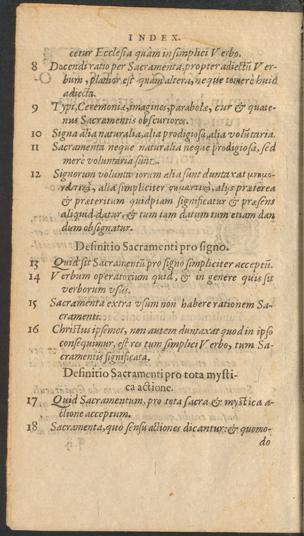 INDEX.
cetur Ecclesia quàm in simplici Verbo.
8 Docendi ratio per Sacramenta, propter adiectũ Ver-
bum, planior est quàm altera, neque temerè huic
adiecta.
9 Typi, Ceremoniæ, imagines, parabolæ, cur & quate-
nus Sacramentis obscuriores.
10 Signa alia naturalia, alia prodigiosa, alia volũtaria.
11 Sacramenta neque naturalia neque prodigiosa, sed
merè voluntaria sunt.
12 Signorum voluntariorum alia sunt duntaxat
alia simpliciter σημαντικὰ, aliis præterea
& præteritum quidpiam significatur & præsens
aliquid datur, & tum iam datum tum etiam dan
dum obsignatur.
Definitio Sacramenti pro signo.
13 Quid sit Sacramentũ pro signo simpliciter acceptũ.
14 Verbum operatorium quid, & in genere quis sit
verborum vsus.
15 Sacramenta extra vsum non habere rationem Sa-
cramenti.
16 Christus ipsemet, non autem duntaxat quod in ipso
consequimur, est res tum simplici Verbo, tum Sa-
cramentis significata.
Definitio Sacramenti pro tota mysti-
ca actione.
17 Quid Sacramentum, pro tota sacra & mystica a-
ctione acceptum.
18 Sacramenta, quo sensu actiones dicantur: & quomo-
do